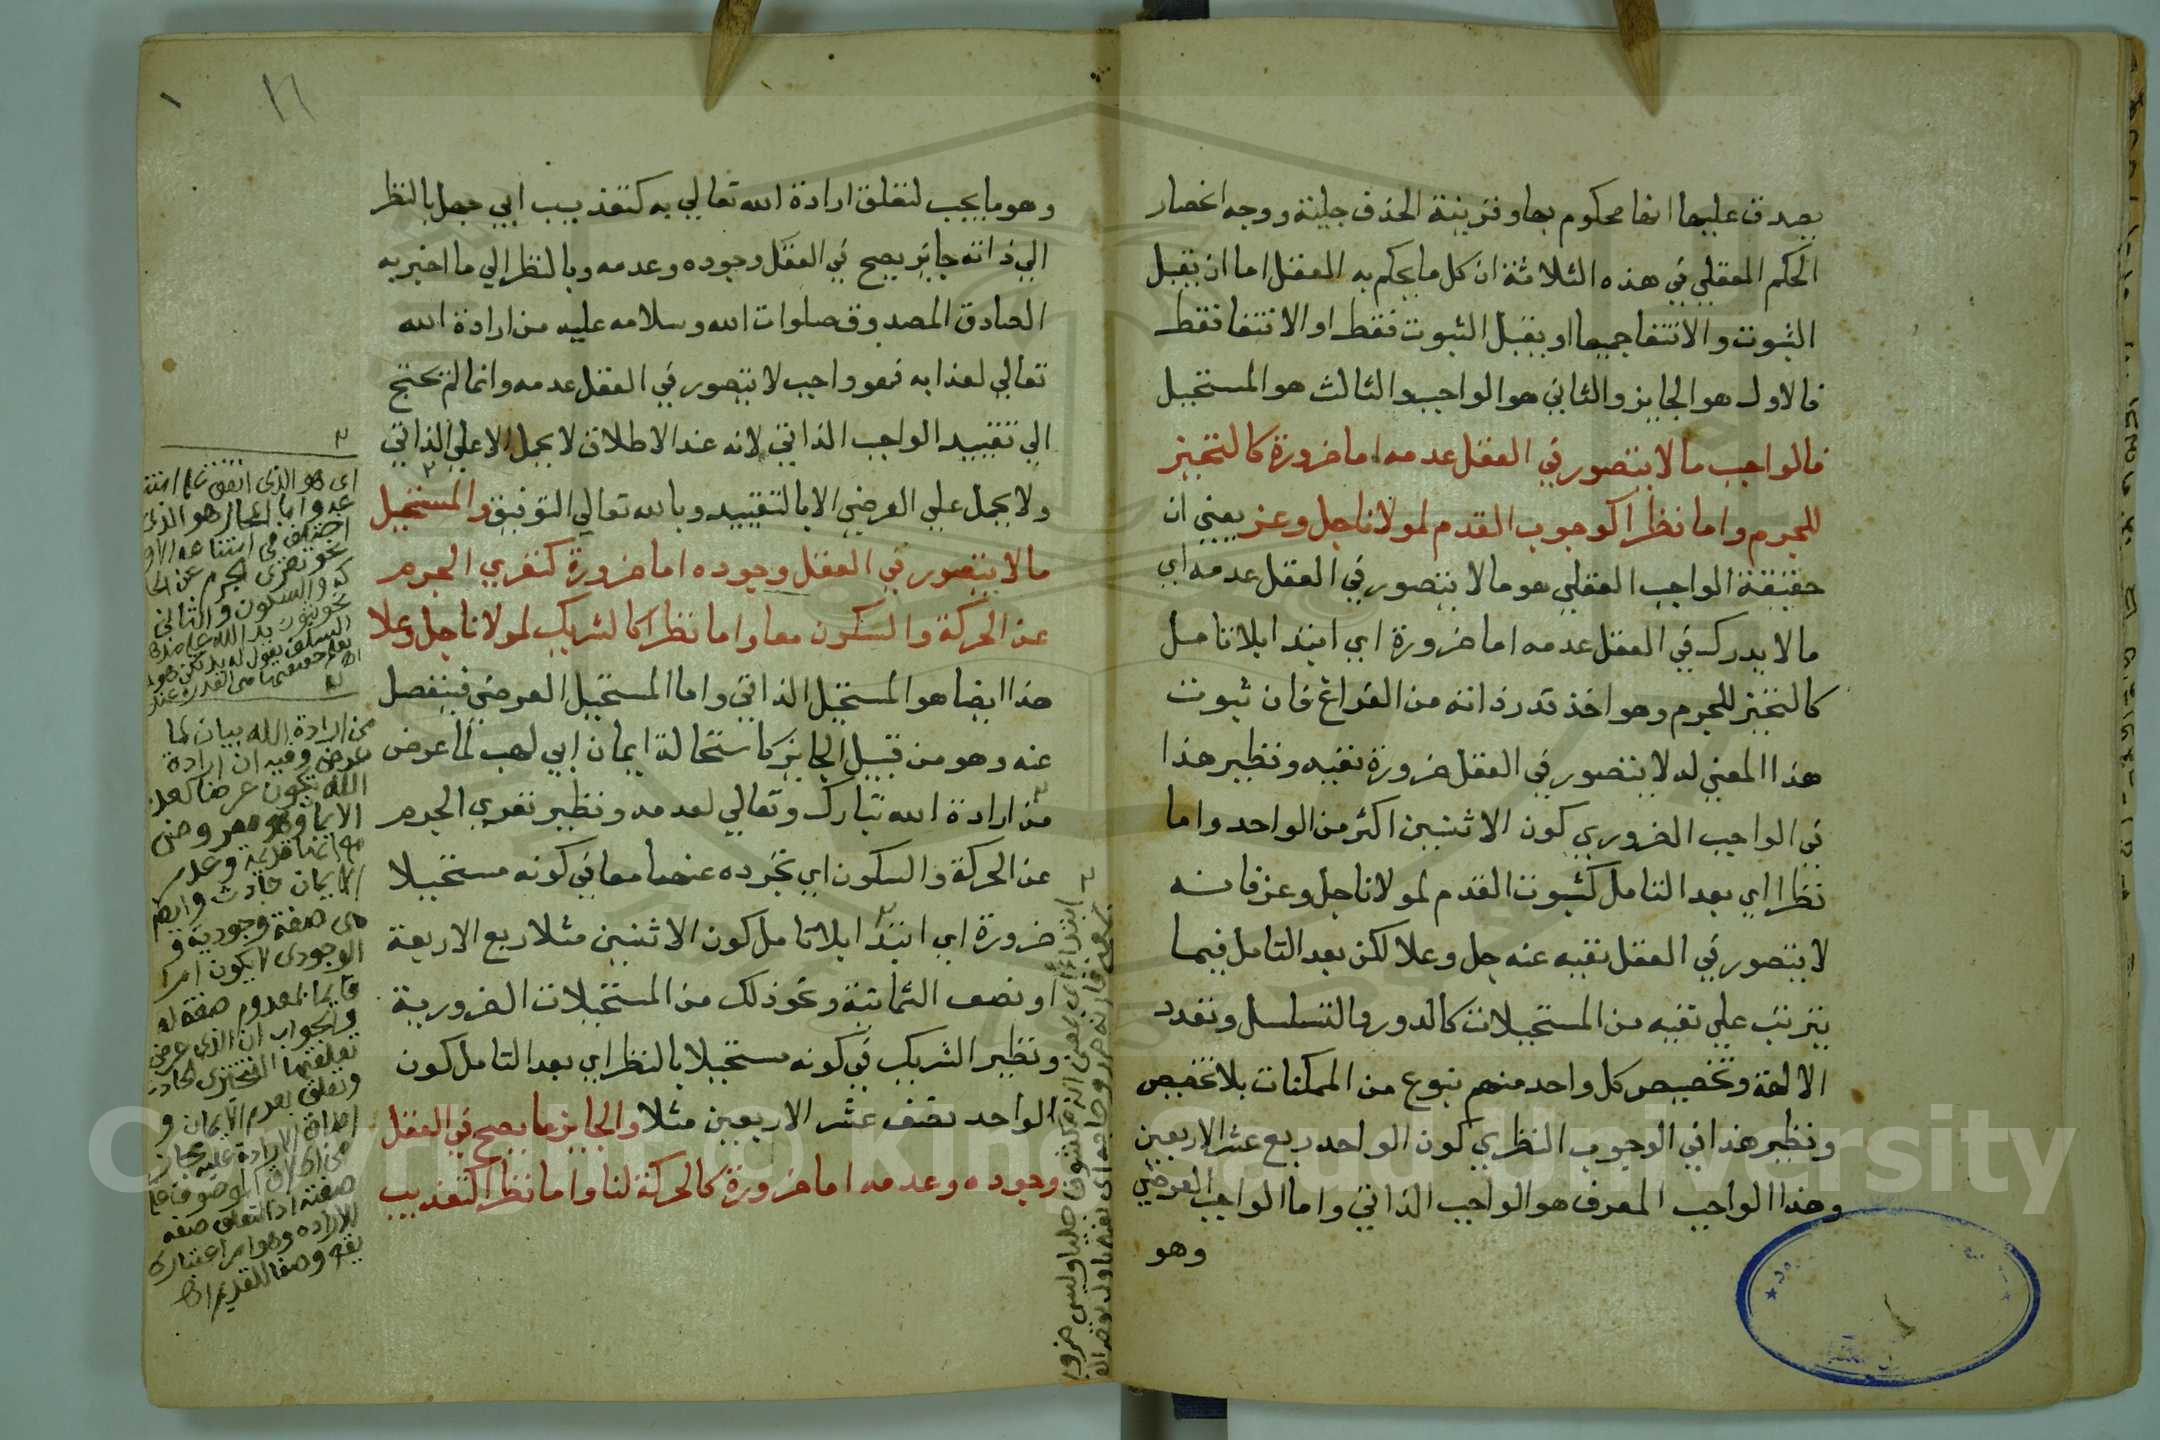 يصدق عليها انها محكوم بها وقرينة الحذف جلية ووجه انحصار
الحكم العقلي في هذه الثلاثة ان كل ما يحكم به العقل اما ان يقبل
الثبوت والانتفا جميعا او يقبل الثبوت فقط او الانتفا فقط
فالاول هو الجايز والثاني هو الواجب والثالث هو المستحيل
فالواجب ما لا يتصور في العقل عدمه اما ضرورة كالتحيز
للجرم واما نظرا كوجوب القدم لمولانا جل وعز يعني ان
حقيقة الواجب العقلي هو ما لا يتصور في العقل عدمه اي
ما لا يدرك في العقل عدمه اما ضرورة اي ابتدا بلا تامل
كالتحيز للجرم وهو اخذ قدر ذاته من الفراغ فان ثبوت
هذا المعني له لا يتصور في العقل ضرورة نفيه ونظير هذا
في الواجب الضروري كون الاثنين اكثر من الواحد واما
نظرا اي بعد التامل كثبوت القدم لمولانا جل وعز فانه
لا يتصور في العقل نفيه عنه جل وعلا لكن بعد التامل فيما
يترتب علي نفيه من المستحيلات كالدور والتسلسل وتعدد
الالهة وتخصيص كل واحد منهم بنوع من الممكنات بلا مخصص
ونظير هذا في الوجوب النظري كون الواحد ربع عشر الاربعين
وهذا الواجب المعرف هو الواجب الذاتي واما الواجب العرضي
وهو
١٦
وهو ما يجب لتعلق ارادة الله تعالي به كتعذيب ابي جهل بالنظر
الي ذاته جايز يصح في العقل وجوده وعدمه وبالنظر الي ما اخبر به
الصادق المصدوق صلوات الله وسلامه عليه من ارادة الله
تعالي لعذابه فهو واجب لا يتصور في العقل عدمه وانما لم يحتج
الي تقييد الواجب الذاتي لانه عند الاطلاق لا يحمل الا علي الذاتي
ولا يحمل علي العرضي الا بالتقييد وبالله تعالي التوفيق والمستحيل
ما لا يتصور في العقل وجوده اما ضرورة كتعري الجرم
عن الحركة والسكون معا واما نظرا كالشريك لمولانا جل وعلا
هذا ايضا هو المستحيل الذاتي واما المستحيل العرضي فينفصل
عنه وهو من قبيل الجايز كاستحالة ايمان ابي لهب لما عرض
من ارادة الله تبارك وتعالي لعدمه ونظير تعري الجرم
عن الحركة والسكون اي تجرده عنهما معا في كونه مستحيلا
ضرورة اي ابتدا بلا تامل كون الاثنين مثلا ربع الاربعة
او نصف الثمانية ونحو ذلك من المستحيلات الضرورية
ونظير الشريك في كونه مستحيلا بالنظر اي بعد التامل كون
الواحد نصف عشر الاربعين مثلا والجايز ما يصح في العقل
وجوده وعدمه اما ضرورة كالحركة لنا واما نظرا كتعذيب
اي هو الذي اتفق علي
اختلف في
نحو تعري الجرم عن الحر
كة والسكون والثاني
من ارادة الله بيان لما
عرض وفيه ان ارادة
الله تكون عرضا لعد
وعدم
الايمان حادث وايضا
هي صفة وجودية و
الوجودي لا يكون امرا
قايما بالمعدوم صفة له
والجواب ان الذي عرض
تعلقها التنجيزي الحادث
وتعلق بعدم الايمان و
اطلاق الارادة عليه مجاز
من اطلاق الموصوف علي
صفته اذ التعلق صفة
للارادة وهو امر اعتباري
Copyright © King Saud University